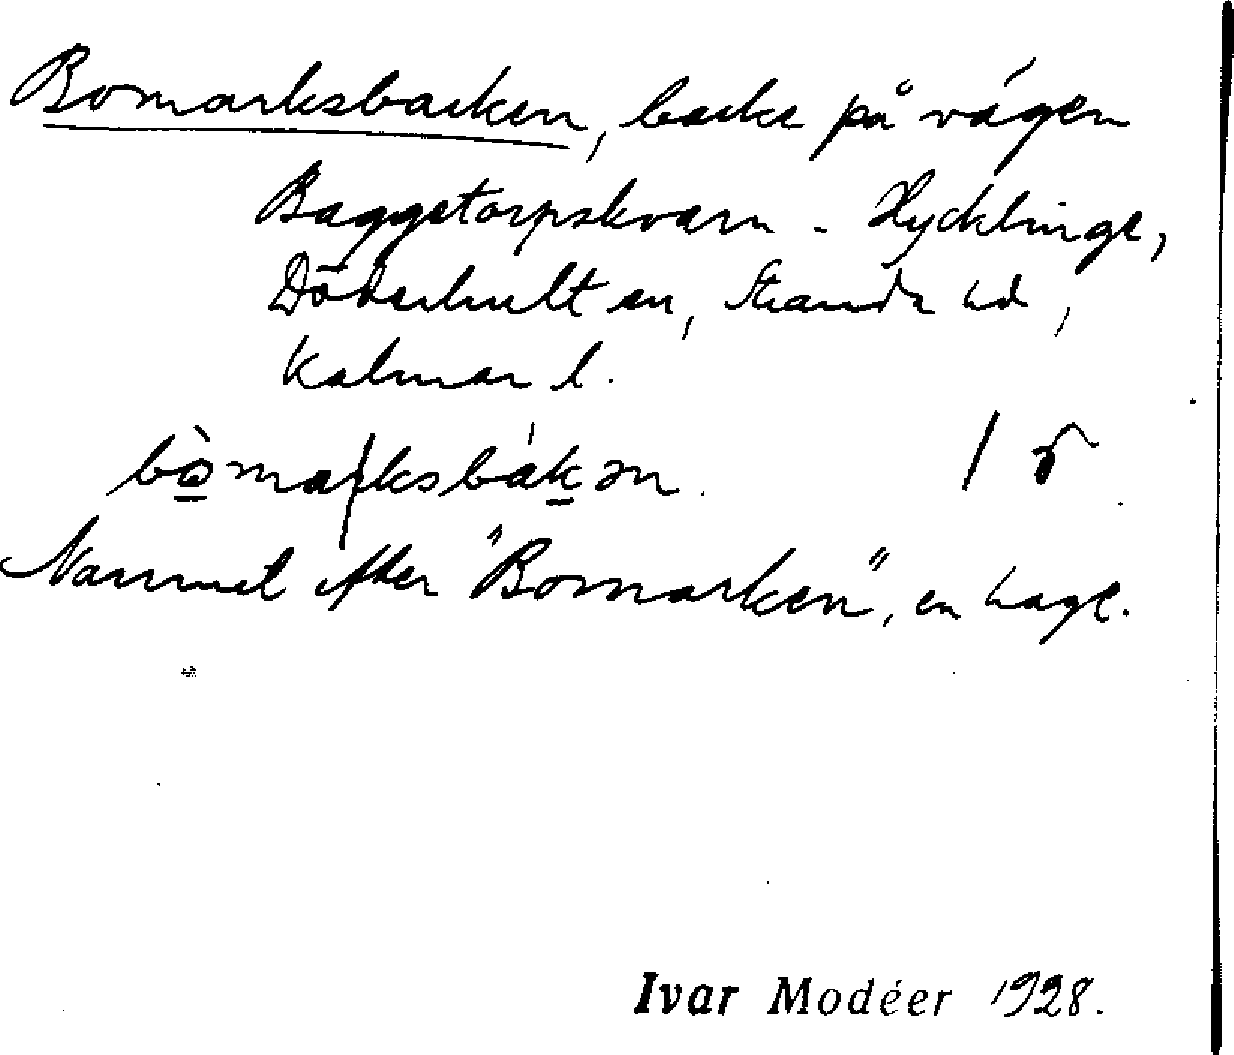 Bomarksbacken, backe på vägen
Baggetorpskvarn - Hycklinge,
Döderhult sn, Stranda hd,
Kalmar l.
bòmarksbák̲ən.
Namnet efter "Bomarken", en hage.
Ivar Modéer 1928.